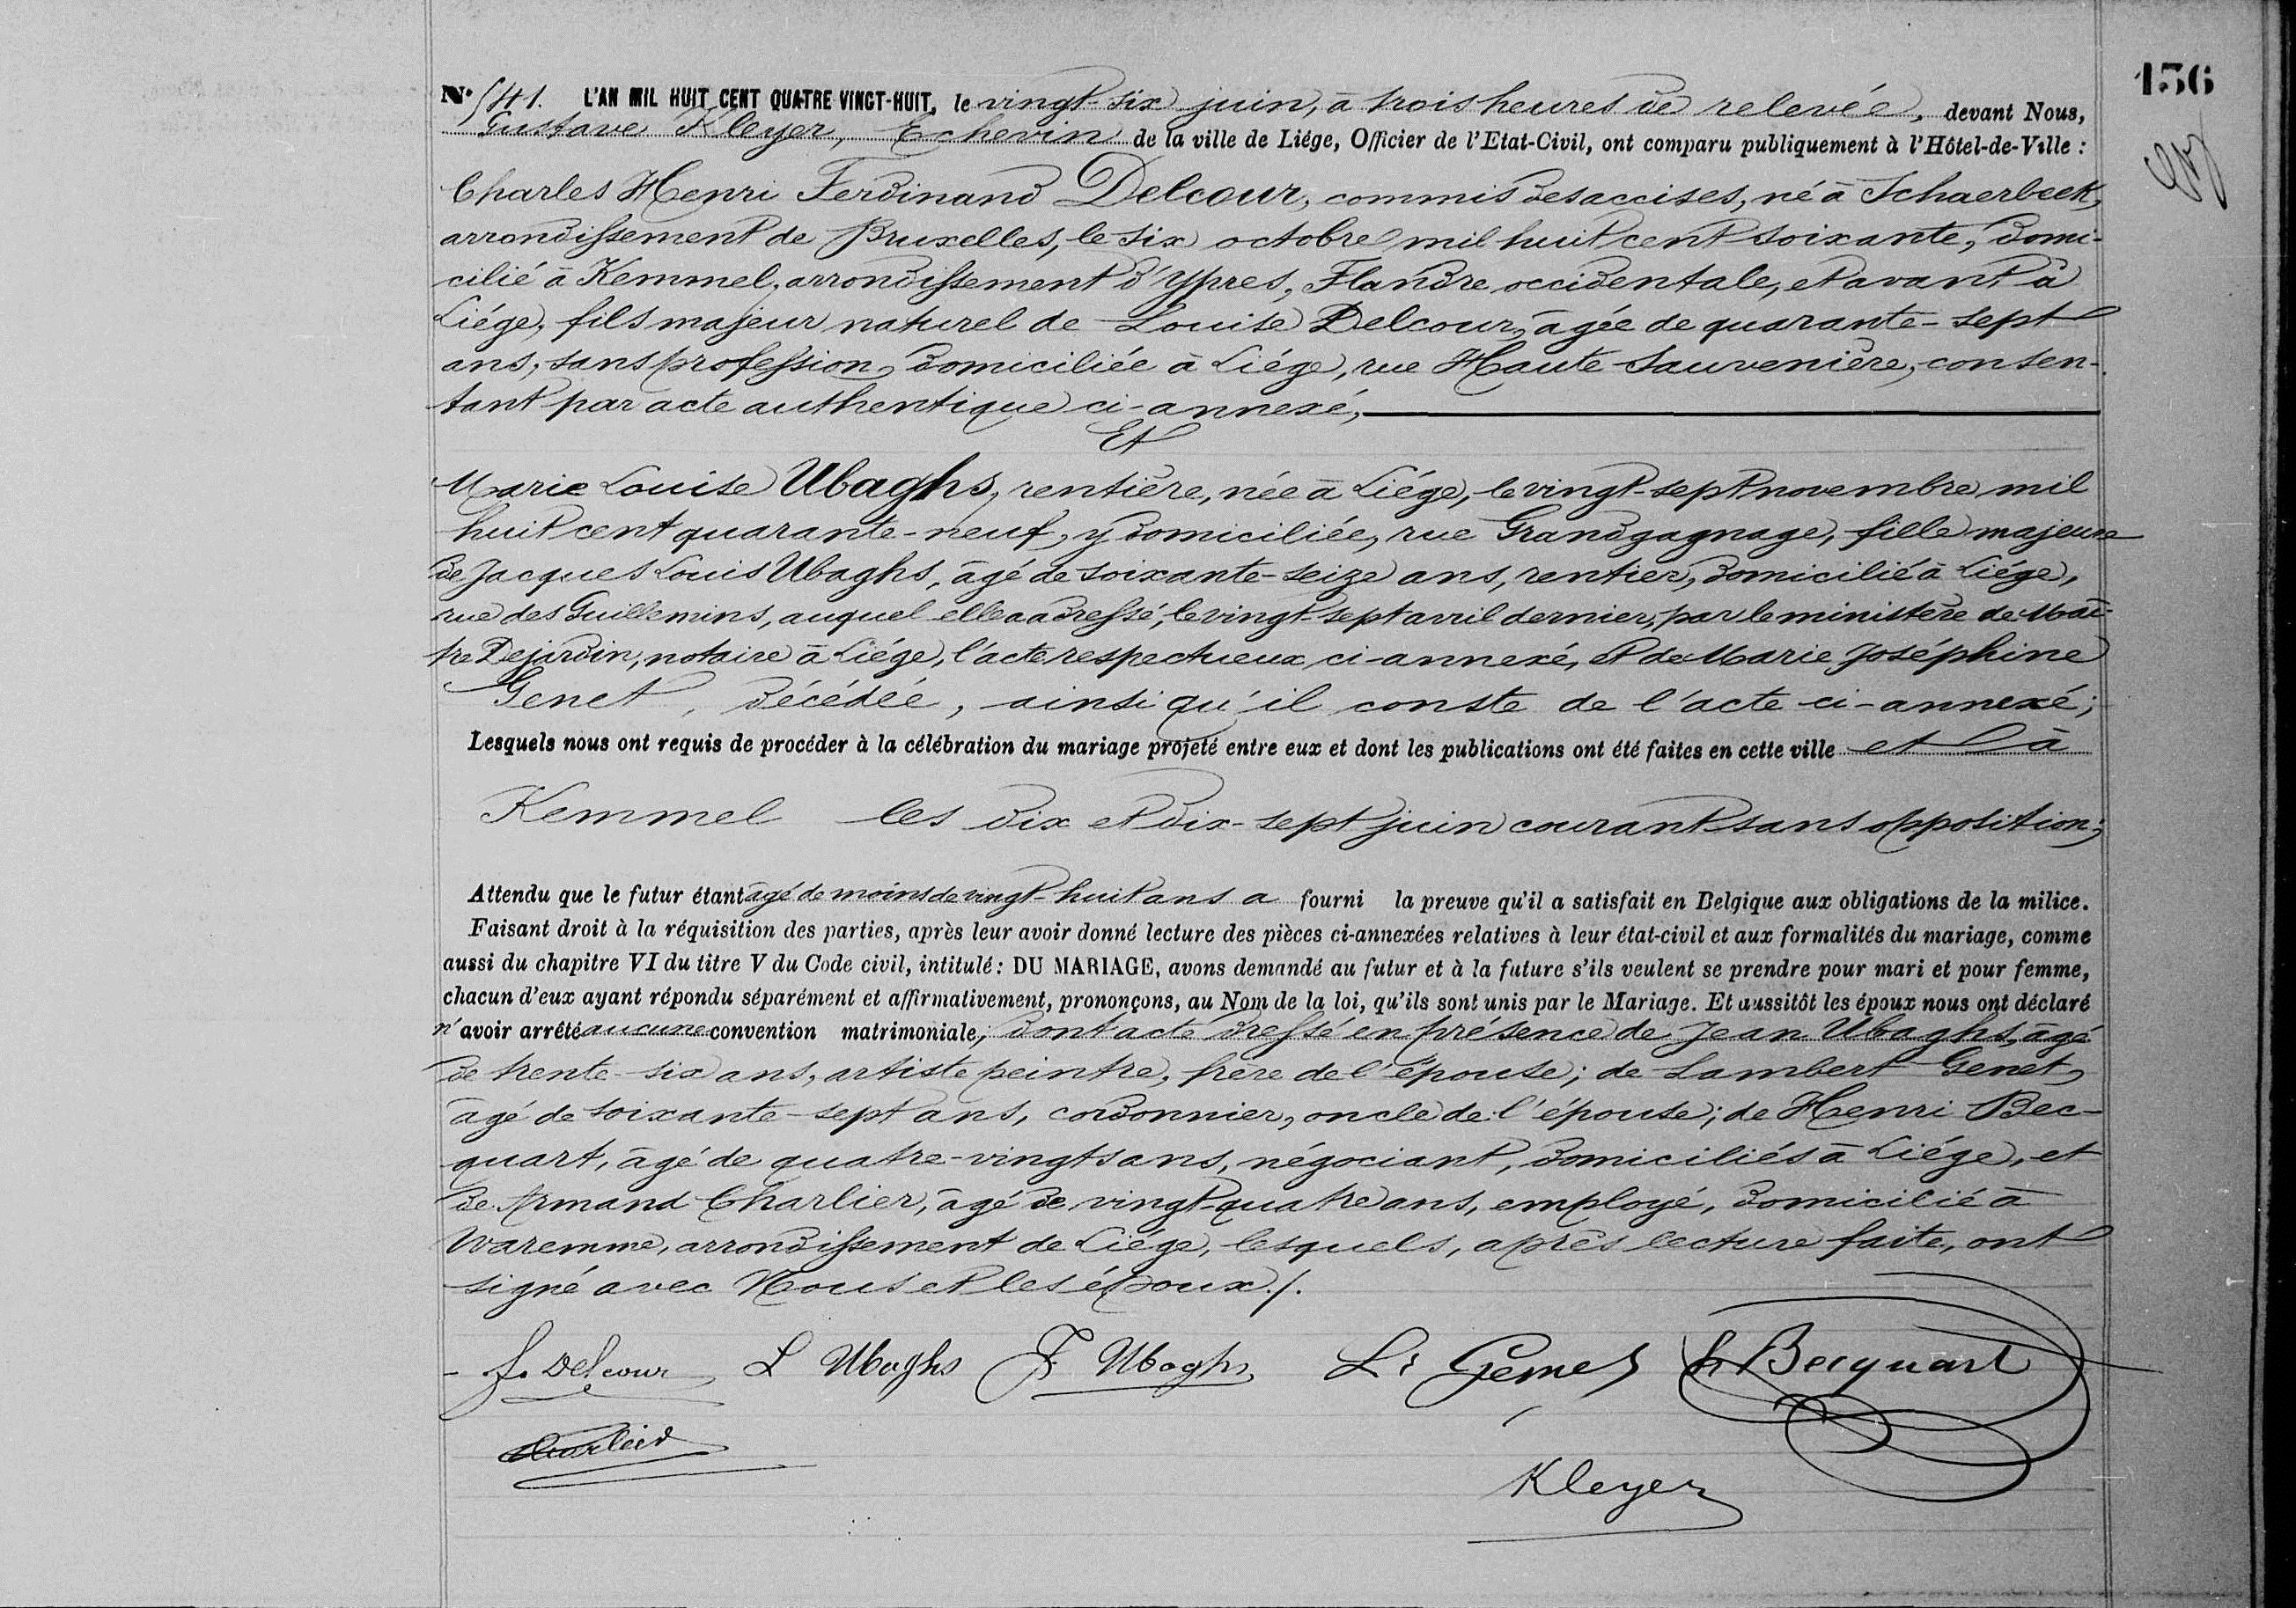 156
N° 541. L'AN MIL HUIT CENT QUATRE VINGT-HUIT, le vingt-six juin, à trois heures de relevée, devant Nous,
Gustave Kleyer, Echevin de la ville de Liége, Officier de l'Etat-Civil, ont comparu publiquement à l'Hôtel-de-Ville :
Charles Henri Ferdinand Delcour, commis des accises, né à Schaerbeek,
arrondissement de Bruxelles, le six octobre mil huit cent soixante, domi-
cilié à Kemmel, arrondissement d'Ypres, Flandre occidentale, et avant à
Liége, fils majeur naturel de Louise Delcour, âgée de quarante-sept
ans, sans profession, domiciliée à Liége, rue Haute Sauvenière, consen-
tant par acte authentique ci-annexé,
Et
Marie Louise Ubaghs, rentière, née à Liége, le vingt-sept novembre mil
huit cent quarante-neuf, y domiciliée, rue Grandgagnage, fille majeure
de Jacques Louis Ubaghs, âgé de soixante-seize ans, rentier, domicilié à Liége,
rue des Guillemins, auquel elle a adressé, le vingt-sept avril dernier, par le ministère de Maî-
tre Dejardin, notaire à Liége, l'acte respectueux ci-annexé, et de Marie Joséphine
Genet, décédée, ainsi qu'il conste de l'acte ci-annexé;
Lesquels nous ont requis de procéder à la célébration du mariage projeté entre eux et dont les publications ont été faites en cette ville et à
Kemmel les dix et dix-sept juin courant sans opposition;
Attendu que le futur étant âgé de moins de vingt-huit ans a fourni la preuve qu'il a satisfait en Belgique aux obligations de la milice.
Faisant droit à la réquisition des parties, après leur avoir donné lecture des pièces ci-annexées relatives à leur état-civil et aux formalités du mariage, comme
aussi du chapitre VI du titre V du Code civil, intitulé : DU MARIAGE, avons demandé au futur et à la future s'ils veulent se prendre pour mari et pour femme,
chacun d'eux ayant répondu séparément et affirmativement, prononçons, au Nom de la loi, qu'ils sont unis par le Mariage. Et aussitôt les époux nous ont déclaré
n'avoir arrêté aucune convention matrimoniale, dont acte dressé en présence de Jean Ubaghs, âgé
de trente-six ans, artiste peintre, frère de l'épouse; de Lambert Genet,
âgé de soixante-sept ans, cordonnier, oncle de l'épouse; de Henri Bec-
quart, âgé de quatre-vingts ans, négociant, domiciliés à Liége, et
de Armand Charlier, âgé de vingt-quatre ans, employé, domicilié à
Waremme, arrondissement de Liége, lesquels, après lecture faite, ont
signé avec Nous et les époux./.
f. Delcour L Ubaghs J. Ubaghs Lt Gemet h Becquart
Charlier
Kleyer